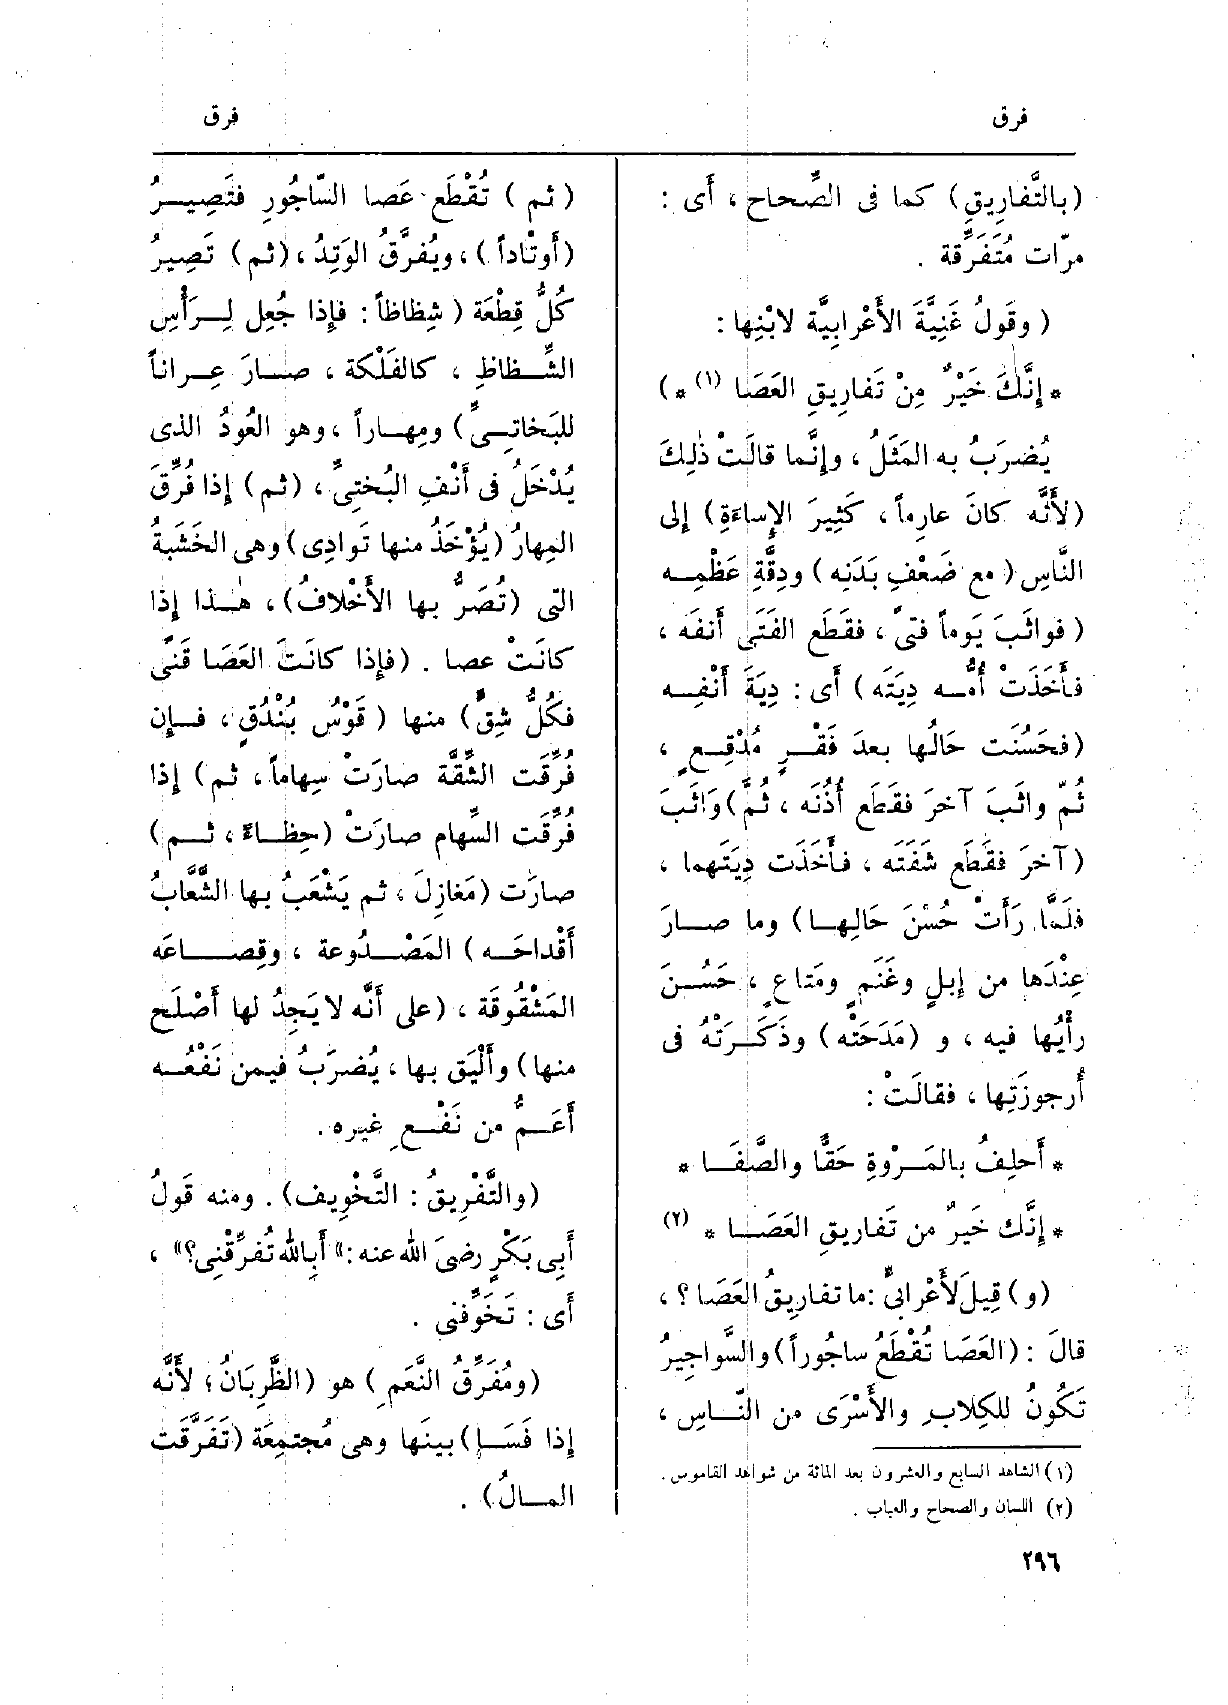 فرق
فرق
(بالتَّفارِيقِ) كما فى الصِّحاح ، أَى :
مرّات مُتَفَرِّقة .
( وقَولُ غَنِيَّةَ الأَعْرابِيَّة لابْنِها :
* إِنَّكَ خَيْرٌ مِنْ تَفارِيقِ العَصَا (١) *)
يُضرَبُ به المَثَلُ ، وإِنَّما قالَتْ ذٰلِكَ
(لأَنَّه كانَ عارِماً ، كَثِيرَ الإِساءَةِ) إِلى
النَّاسِ (مع ضَعْفِ بَدَنِه) ودِقَّةِ عَظْمِـه
( فواثَبَ يَوماً فتىً ، فقَطَع الفَتَى أَنفَه ،
فأَخَذَتْ أُمُّـه دِيَتَه ) أَى : دِيَةَ أَنْفِـه
(فحَسُنَت حَالُها بعدَ فَقْـرٍ مُدْقِـعٍ ،
ثُمّ واثَبَ آخرَ فقَطَع أُذُنَه ، ثُمَّ) وَاثَبَ
(آخرَ فقَطَع شَفَتَه ، فأَخَذَت دِيَتَهما ،
فلَمَّا رَأَتْ حُسْنَ حَالِهـا) وما صـارَ
عِنْدَها من إِبلٍ وغَنَمٍ ومَتاعٍ ، حَسُـنَ
رأْيُها فيه ، و (مَدَحَتْه) وذَكَـرَتْهُ فى
أُرجوزَتِها ، فقالَتْ :
* أَحلِفُ بالمَـرْوةِ حَقًّا والصَّفَـا *
* إِنَّك خَيرٌ من تَفاريقِ العَصَـا * (٢)
(و) قِيلَ لأَعْرابىٍّ : ما تفاريقُ العَصَا ؟ ،
قالَ : (العَصَا تُقْطَعُ ساجُوراً) والسَّواجِيرُ
تَكُونُ للكِلابِ والأَسْرَى من النَّـاسِ ،
(١) الشاهد السابع والعشرون بعد المائة من شواهد القاموس .
(٢) اللسان والصحاح والعباب .
٢٩٦
( ثم ) تُقْطَع عَصا السَّاجُورِ فتَصِيـرُ
(أَوتْاداً ) ، ويُفرَّقُ الوَتِدُ ، (ثم) تَصِيرُ
كُلُّ قِطْعَة ( شِظاظاً : فإِذا جُعِل لِـرَأْسِ
الشِّـظاظِ ، كالفَلْكة ، صـارَ عِـراناً
للبَخاتِـىِّ ) ومِهـاراً ، وهو العُودُ الذى
يُدْخَلُ فى أَنْفِ البُختِىِّ ، (ثم) إِذا فُرِّقَ
المِهارُ (يُؤْخَذُ منها تَوادِى) وهى الخَشَبةُ
التى (تُصَرُّ بها الأَخْلافُ) ، هـٰذا إِذا
كانَتْ عصا . (فإِذا كانَتَ العَصَا قَنىً
فكُلُّ شِقٍّ) منها ( قَوْسُ بُنْدُقٍ ، فـإِن
فُرِّقَت الشِّقَّة صارَتْ سِهاماً ، ثم ) إِذا
فُرِّقَت السِّهام صارَتْ (حِظـاءً ، ثـم )
صارَت (مَغازِلَ ، ثم يَشْعَبُ بها الشَّعَّابُ
أَقْداحَـه ) المَصْـدُوعة ، وقِصـاعَه
المَشْقُوقَة ، (على أَنَّه لا يَجِدُ لها أَصْلَح
منها) وأَلْيَق بها ، يُضرَبُ فيمن نَفْعُـه
أَعَـمُّ من نَفْـعِ غيره .
(والتَّفْرِيقُ : التَّخْوِيف) . ومنه قَولُ
أَبِى بَكْرٍ رضىَ اللّٰه عنه : «أَبِاللّٰه تُفرِّقْنِى ؟» ،
أَى : تَخَوِّفنى .
(ومُفَرِّقُ النَّعَمِ ) هو (الظَّرِبَانُ ؛ لأَنَّه
إِذا فَسَـا ) بينَها وهى مُجتمِعَة (تَفَرَّقَت
المـالُ) .